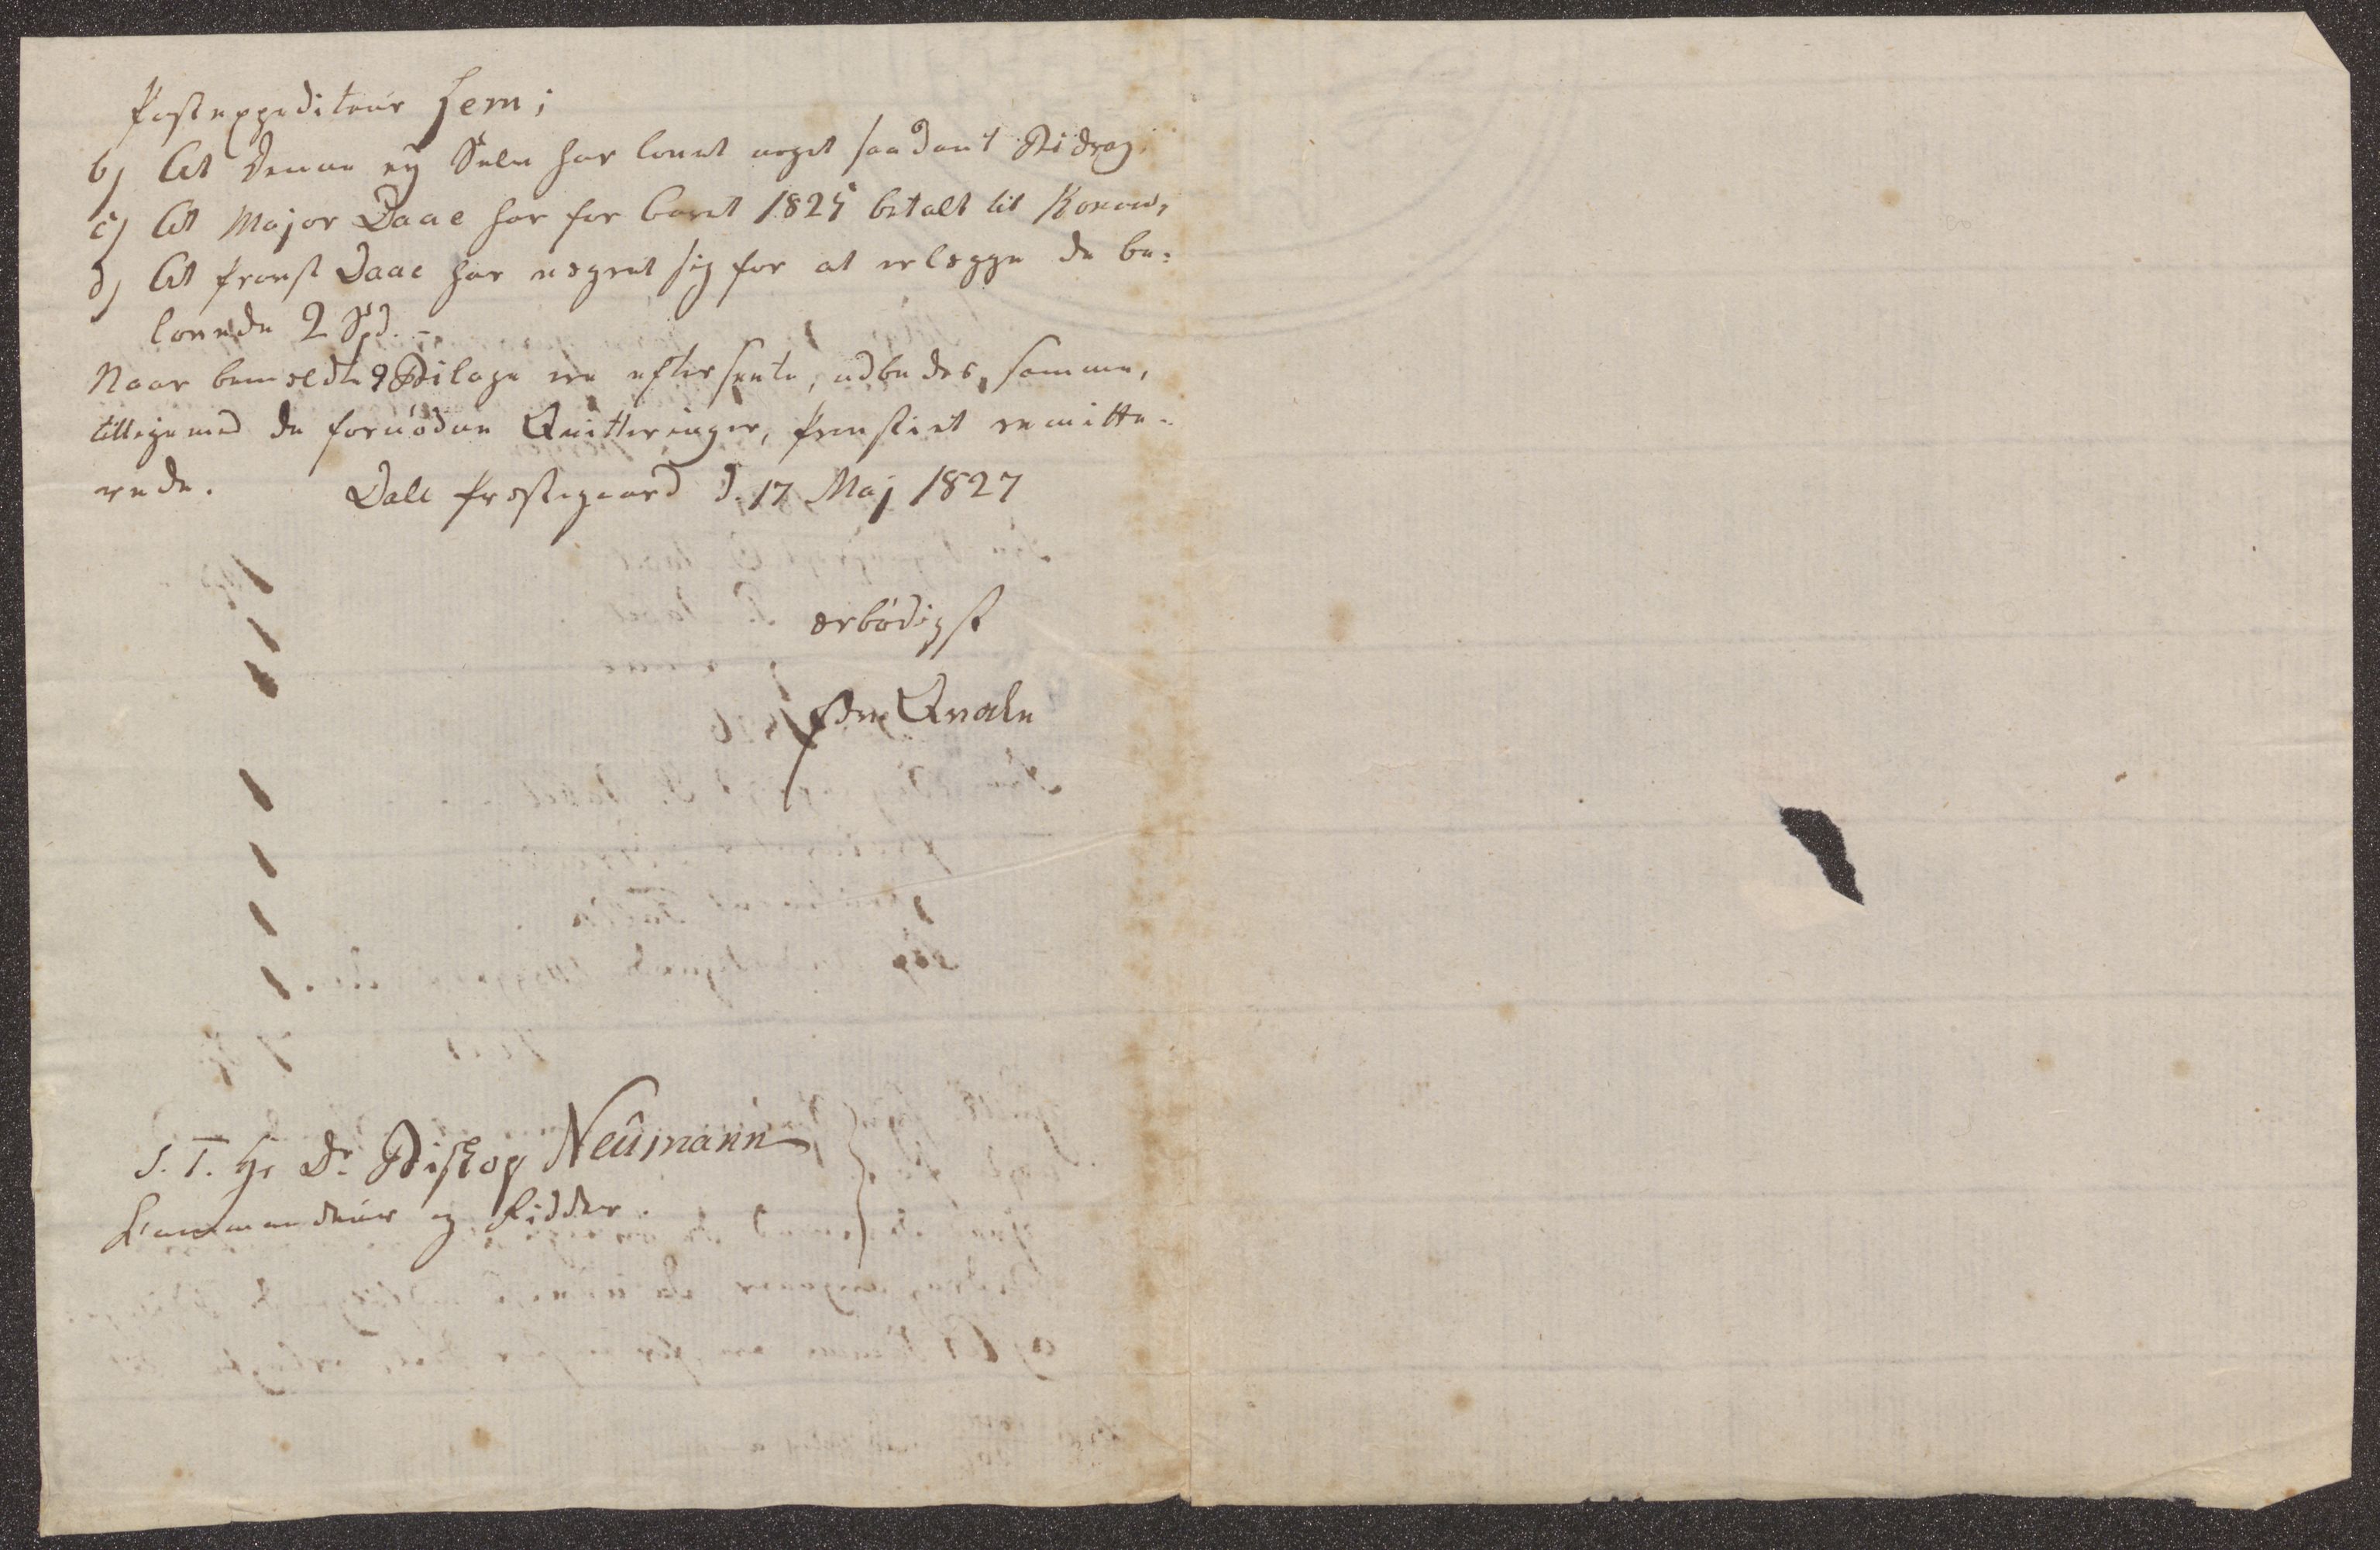 Postexpediteur Hem;
b) At denne ey Selv har lovet noget saadant Bidrag.
c) At Major Daae har for Aaret 1825 betalt til Konow,
d) At Provst Daae har vegret sig for at erlægge de be-
lovede 2 Spd. -
Naar bemeldte Bilage ere efterseete, udbedes samme,
tilligemed de fornødne Qvitteringer, gunstigt remitte-
rede. Dale Præstegaard d. 17 Maj 1827
ærbødigst
Qvale
S. T. Hr Dr. Biskop Neumann
Commandeur og Ridder.